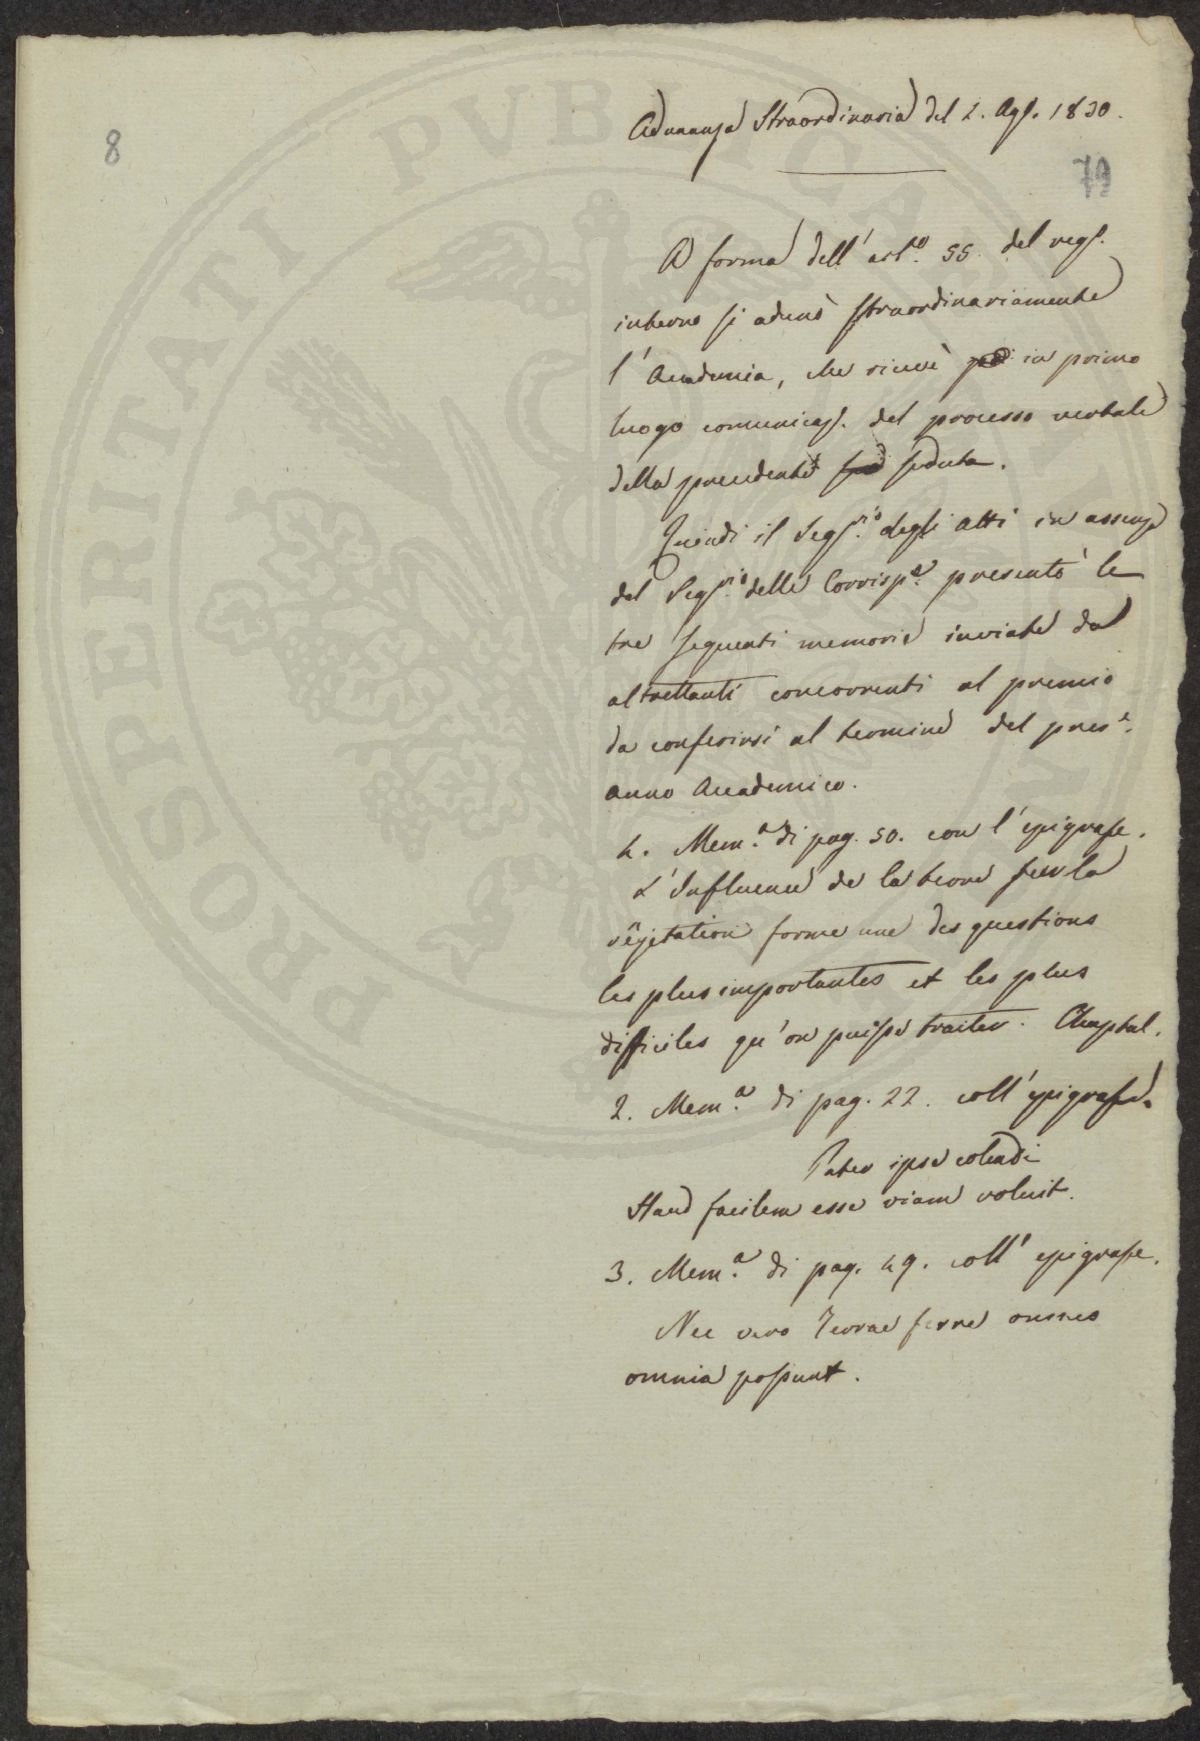 8
Adunanza Straordinaria del 2. Ags. 1830.
79
A forma dell'arto. 55. del regs.
interno si adunò straordinariamente
l'Accademia, che ricevè in primo
luogo comunicazs. del processo verbale
della precedente seduta.
Quindi il Segrio. degli Atti in assenza
del Segrio. delle Corrispe. presentò le
tre seguenti memorie inviate da
altrettanti concorrenti al premio
da conferirsi al termine del prese.
anno Accademico.
1. Mema. di pag. 50. con l'epigrafe.
L'Influence de la terre sur la
végetation forme une des questions
les plus importantes et les plus
difficiles qu'on puisse traiter. Chaptal.
2. Mema. di pag. 22. coll'epigrafe.
Pater ipse colendi
Haud facilem esse viam voluit.
3. Mema. di pag. 49. coll'epigrafe.
Nec vero Terrae ferre omnes
omnia possunt.
PROSPERITATI PVBLICAE